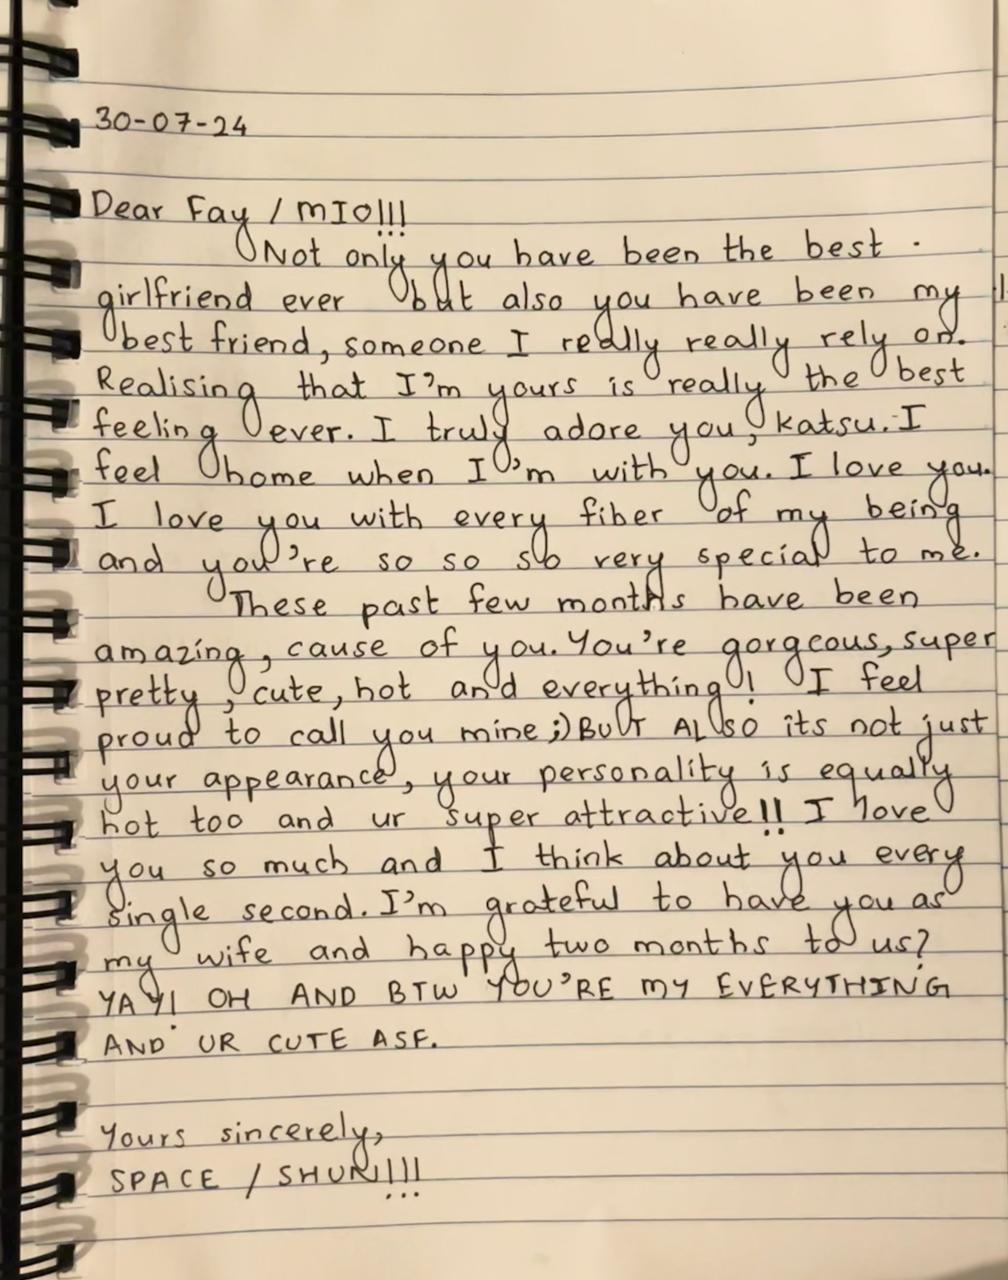 30-07-24
Dear Fay / MIO!!!
Not only you have been the best .
girlfriend ever but also you have been my
best friend, someone I really really rely on.
Realising that I'm yours is really the best
feeling ever. I truly adore you, katsu. I
feel home when I'm with you. I love you.
I love you with every fiber of my being
and you're so so so very special to me.
These past few months have been
amazing, cause of you. You're gorgeous, super
pretty, cute, hot and everything! I feel
proud to call you mine ;) BUT ALSO its not just
your appearance, your personality is equally
hot too and ur super attractive!! I love
you so much and I think about you every
single second. I'm grateful to have you as
my wife and happy two months to us?
YAY! OH AND BTW YOU'RE MY EVERYTHING
AND UR CUTE ASF.
Yours sincerely,
SPACE / SHUN!!!